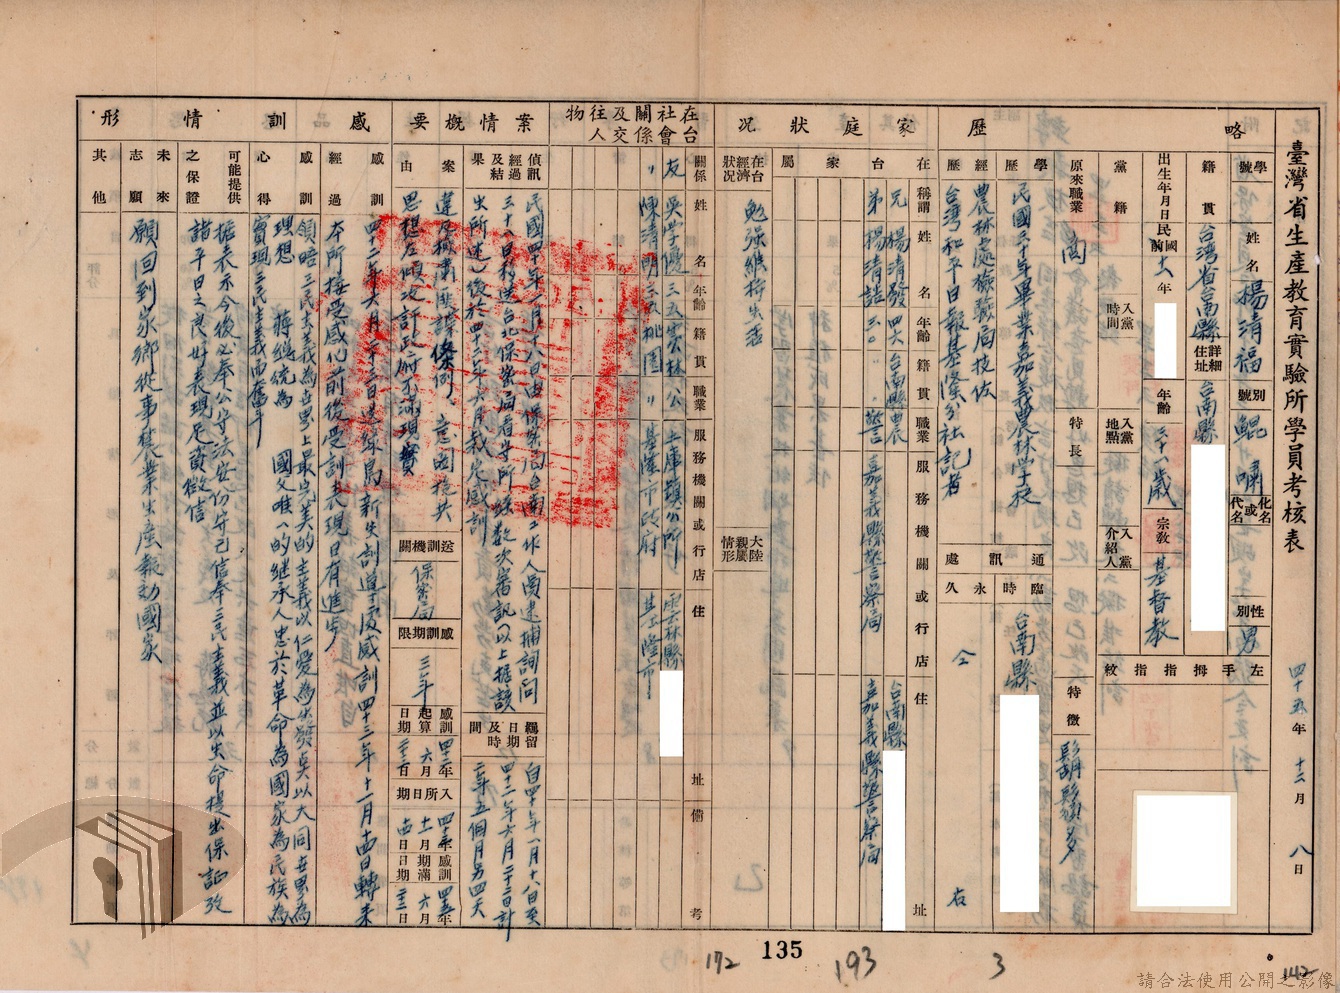 臺灣省生產教育實驗所學員考核表
四十五年十二月八日
略
歷
學號
姓名 楊清福
別號 鯤嘯
化名或代名
性別 男
籍貫 台灣省台南縣
詳細住址 台南縣
左手拇指指紋
出生年月日 民國前 年
年齡 三十八歲
宗教 基督教
黨籍
入黨時間
入黨地點
入黨介紹人
原來職業 商
特長
特徵 鬍鬚多
學歷 民國三十年畢業嘉義農林學校
經歷 農林處檢驗局技佐
台灣和平日報基隆分社記者
通訊處
臨時 台南縣
永久 仝右
家庭狀況
在台家屬
稱謂 姓名 年齡 籍貫 職業 服務機關或行店 住址
兄 楊清發 四六 台南縣 農 台南縣
弟 楊清誥 三〇 〃 警 嘉義縣警察局 嘉義縣警察局
在台經濟狀況 勉強維持生活
大陸親屬情形
在台社會關係及交往人物
關係 姓名 年齡 籍貫 職業 服務機關或行店 住址 備考
友 三五 雲林 公 土庫鎮公所 雲林縣
〃 陳清明 桃園 〃 基隆市政府 基隆市
案情概要
偵訊經過及結果 民國四十年一月十八日由保密局台南工作人員逮捕詢問
三十八日移送台北保密局看守所經數次審訊(以上据該
出所述)後於四十二年六月裁定感訓
羈留日期及時間 自四十年一月十八日至
四十二年六月二十二日計
二年五個月另四天
案由 違反檢肅匪諜條例、意圖挽共
思想左傾攻訐政府不滿現實
送訓機關 保密局
感訓期限 三年
感訓起算日期 四十二年六月二十三日
入所日期 四十三年十一月十四日
感訓期滿日期 四十五年六月二十二日
感訓情形
感訓經過 四十二年六月二十三日送綠島新生訓導處感訓四十三年十一月十四日轉來
本所接受感化前後受訓表現日有進步
感訓心得 領略三民主義為世界上最完美的主義以仁愛為出發奠以大同世界為
理想 蔣總統為 國父唯一的繼承人忠於革命為國家為民族為
實現三民主義而奮鬥
可能提供之保證 据表示今後必奉公守法安份守己信奉三民主義並以生命提出保証攷
諸平日之良好表現足資徵信
未來志願 願回到家鄉從事農業生產報効國家
其他
135
172
193
3
142
請合法使用公開之影像